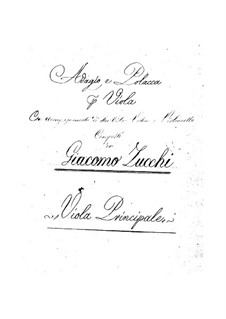 Adagio e Polacca
p Viola
Con accompagnamento di due Violini Viola e Violoncello
Composti
da
Giacomo Zucchi
Viola Principale